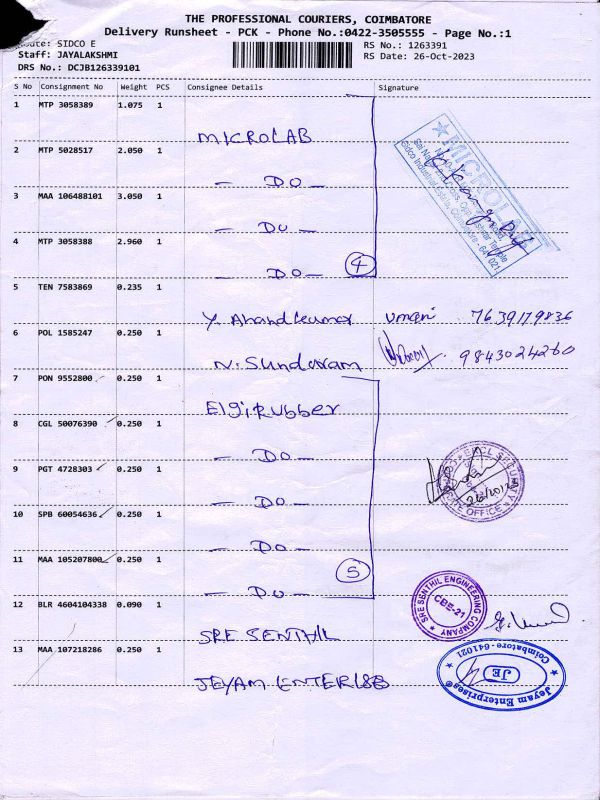 THE PROFESSIONAL COURIERS, COIMBATORE
Delivery Runsheet - PCK - Phone No.:0422-3505555 - Page No.:1
SIDCO E
RS No.: 1263391
Staff: JAYALAKSHMI
RS Date: 26-Oct-2023
DRS No.: DCJB126339101
S No Consignment No Weight PCS Consignee Details Signature
1 MTP 3058389 1.075 1
MICROLAB
2 MTP 5028517 2.050 1
— DO —
3 MAA 106488101 3.050 1
— DO —
4 MTP 3058388 2.960 1
— DO — 4
MICROLAB
5 TEN 7583869 0.235 1
Y. Anandkumar 7639179836
6 POL 1585247 0.250 1
N. Sundaram 9843024260
7 PON 9552800 0.250 1
Elgirubber
8 CGL 50076390 0.250 1
— DO —
9 PGT 4728303 0.250 1
— DO —
SECURITY
OFFICE
10 SPB 60054636 0.250 1
— DO —
11 MAA 105207800 0.250 1
— DO — 5
12 BLR 4604104338 0.090 1
SRE SENTHIL
SRE SENTHIL ENGINEERING COMPANY
CBE-21
13 MAA 107218286 0.250 1
JEYAM ENTERISB
Jeyam Enterprises
JE
Coimbatore - 641021